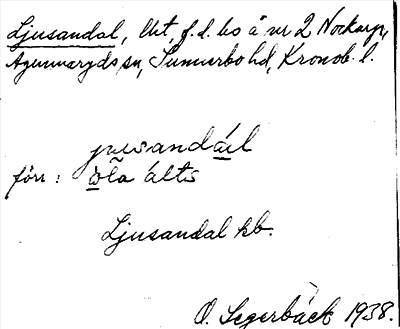 Ljusandal, lht, f.d. bs å nr 2 Nockarp,
Agunnaryds sn, Sunnerbo hd, Kronob. l.
jusandál
förr: òla álts
Ljusandal kb.
O. Segerbäck 1938.